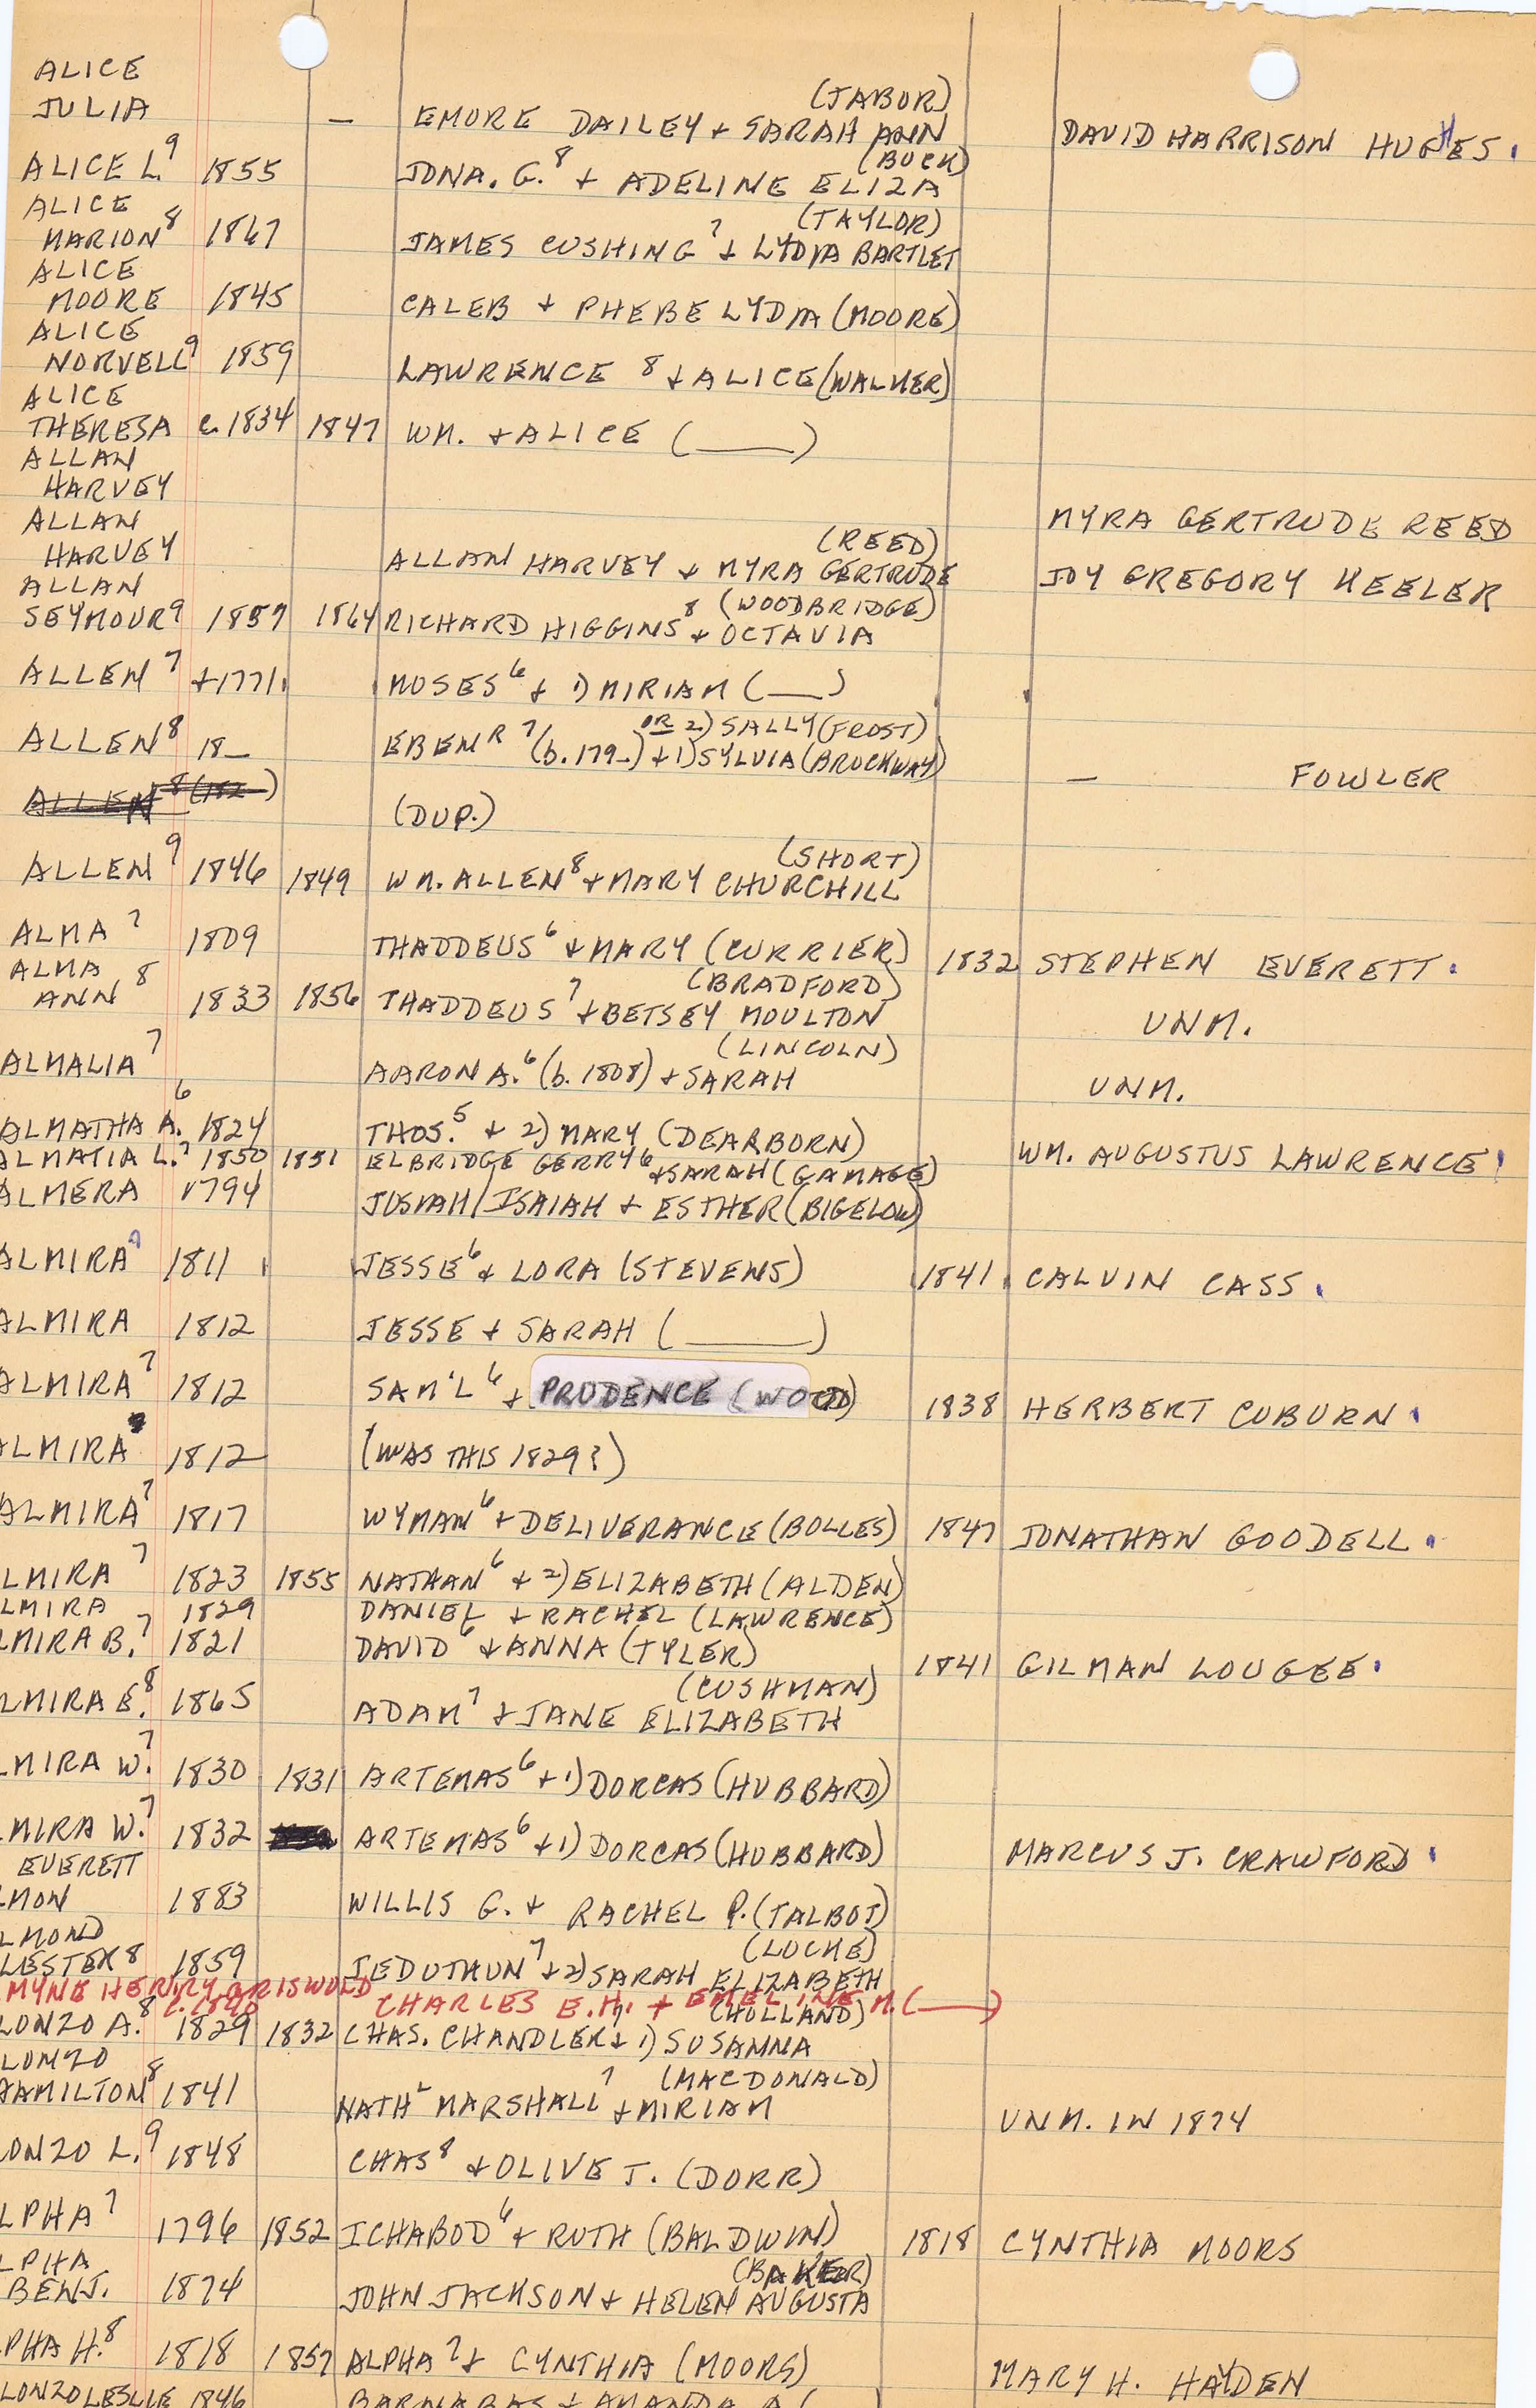 ALICE
(TABOR)
JULIA — EMORE DAILEY + SARAH ANN DAVID HARRISON HUGHES.
(BUCK)
ALICE L.9 1855 JONA. G.8 + ADELINE ELIZA
ALICE (TAYLOR)
MARION8 1867 JAMES CUSHING7 + LYDIA BARTLET
ALICE
MOORE 1845 CALEB + PHEBE LYDIA (MOORE)
ALICE
NORVELL9 1859 LAWRENCE8 + ALICE (WALKER)
ALICE
THERESA c.1834 1847 WM. + ALICE (____)
ALLAN
HARVEY MYRA GERTRUDE REED
ALLAN (REED)
HARVEY ALLAN HARVEY + MYRA GERTRUDE JOY GREGORY KEELER
ALLAN (WOODBRIDGE)
SEYMOUR9 1857 1864 RICHARD HIGGINS8 + OCTAVIA
ALLEN7 +1771 MOSES6 + 1) MIRIAM (___)
OR 2) SALLY (FROST)
ALLEN8 18_ EBENR7 (b.179_) + 1) SYLVIA (BROCKWAY) — FOWLER
ALLEN8 (182_) (DUP.)
(SHORT)
ALLEN9 1846 1849 WM. ALLEN8 + MARY CHURCHILL
ALMA7 1809 THADDEUS6 + MARY (CURRIER) 1832 STEPHEN EVERETT.
ALMA (BRADFORD)
ANN8 1833 1856 THADDEUS7 + BETSEY MOULTON UNM.
(LINCOLN)
ALMALIA7 AARON A.6 (b.1808) + SARAH UNM.
ALMATHA A.6 1824 THOS.5 + 2) MARY (DEARBORN) WM. AUGUSTUS LAWRENCE.
ALMATIA L.7 1850 1851 ELBRIDGE GERRY6 + SARAH (GAMAGE)
ALMERA 1794 JOSIAH/ISAIAH + ESTHER (BIGELOW)
ALMIRA 1811 JESSE6 + LORA (STEVENS) 1841 CALVIN CASS.
ALMIRA 1812 JESSE + SARAH (______)
ALMIRA7 1812 SAM'L6 + PRUDENCE (WOOD) 1838 HERBERT COBURN.
LMIRA 1812 (WAS THIS 1829?)
ALMIRA7 1817 WYMAN6 + DELIVERANCE (BOLLES) 1847 JONATHAN GOODELL.
LMIRA7 1823 1855 NATHAN6 + 2) ELIZABETH (ALDEN)
LMIRA 1829 DANIEL + RACHEL (LAWRENCE)
LMIRA B.7 1821 DAVID6 + ANNA (TYLER) 1841 GILMAN LOUGEE.
(CUSHMAN)
LMIRA E.8 1865 ADAM7 + JANE ELIZABETH
LMIRA W.7 1830 1831 ARTEMAS6 + 1) DORCAS (HUBBARD)
MIRA W.7 1832 ARTEMAS6 + 1) DORCAS (HUBBARD) MARCUS J. CRAWFORD.
EVERETT
LMON 1883 WILLIS G. + RACHEL P. (TALBOT)
LMOND (LOCKE)
LESTER8 1859 JEDUTHUN7 + 2) SARAH ELIZABETH
MYNE HENRY GRISWOLD c.1840 CHARLES E.H. + EMELINE M. (____)
(HOLLAND)
LONZO A.8 1829 1832 CHAS. CHANDLER7 + 1) SUSANNA
LONZO (MACDONALD)
HAMILTON8 1841 NATHL MARSHALL7 + MIRIAM UNM. IN 1874
ONZO L.9 1848 CHAS8 + OLIVE J. (DORR)
LPHA7 1796 1852 ICHABOD6 + RUTH (BALDWIN) 1818 CYNTHIA MOORS
LPHA (BAKER)
BENJ. 1874 JOHN JACKSON + HELEN AUGUSTA
PHA H.8 1818 1857 ALPHA7 + CYNTHIA (MOORS) MARY H. HAYDEN
LONZO LESLIE 1846 BARNABAS + AMANDA A. (